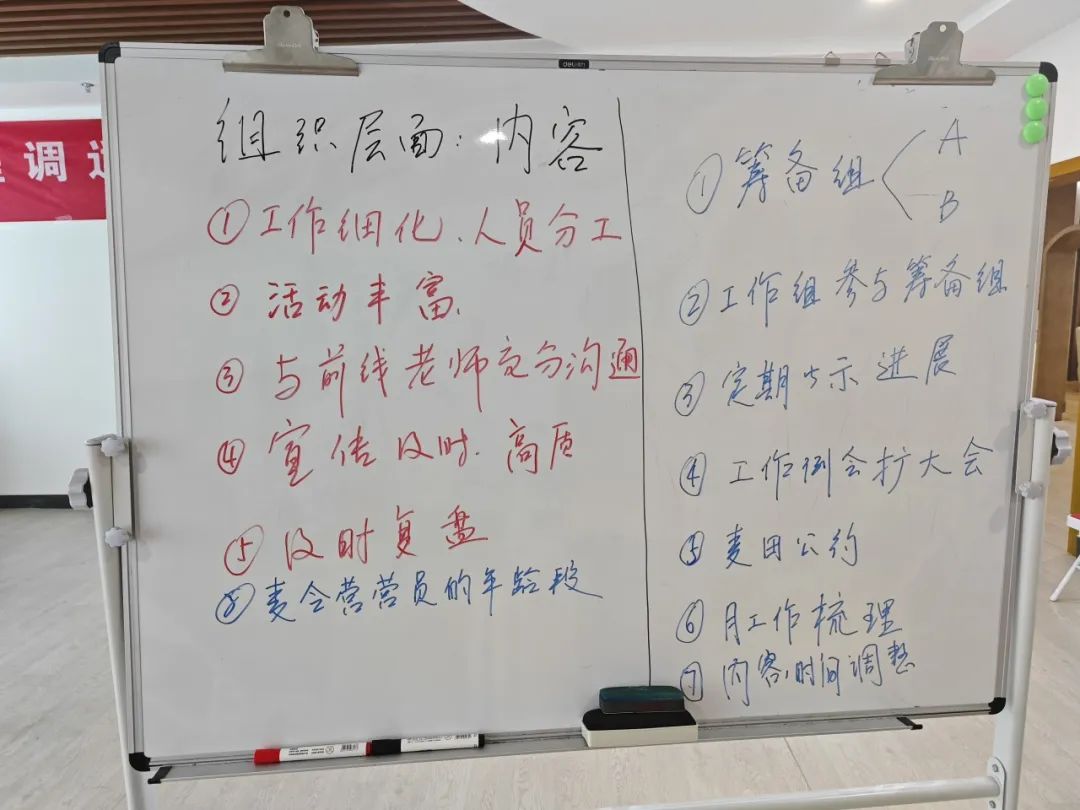 deli
调
组织层面:内容
①工作细化、人员分工
②活动丰富、
③与前线老师充分沟通
④宣传及时、高质
⑤及时复盘
麦令营营员的年龄段
①筹备组
A
B
②工作组参与筹备组
③定期公示进展
④工作例会扩大会
⑤麦田公约
⑥月工作梳理
⑦内容,时间调整